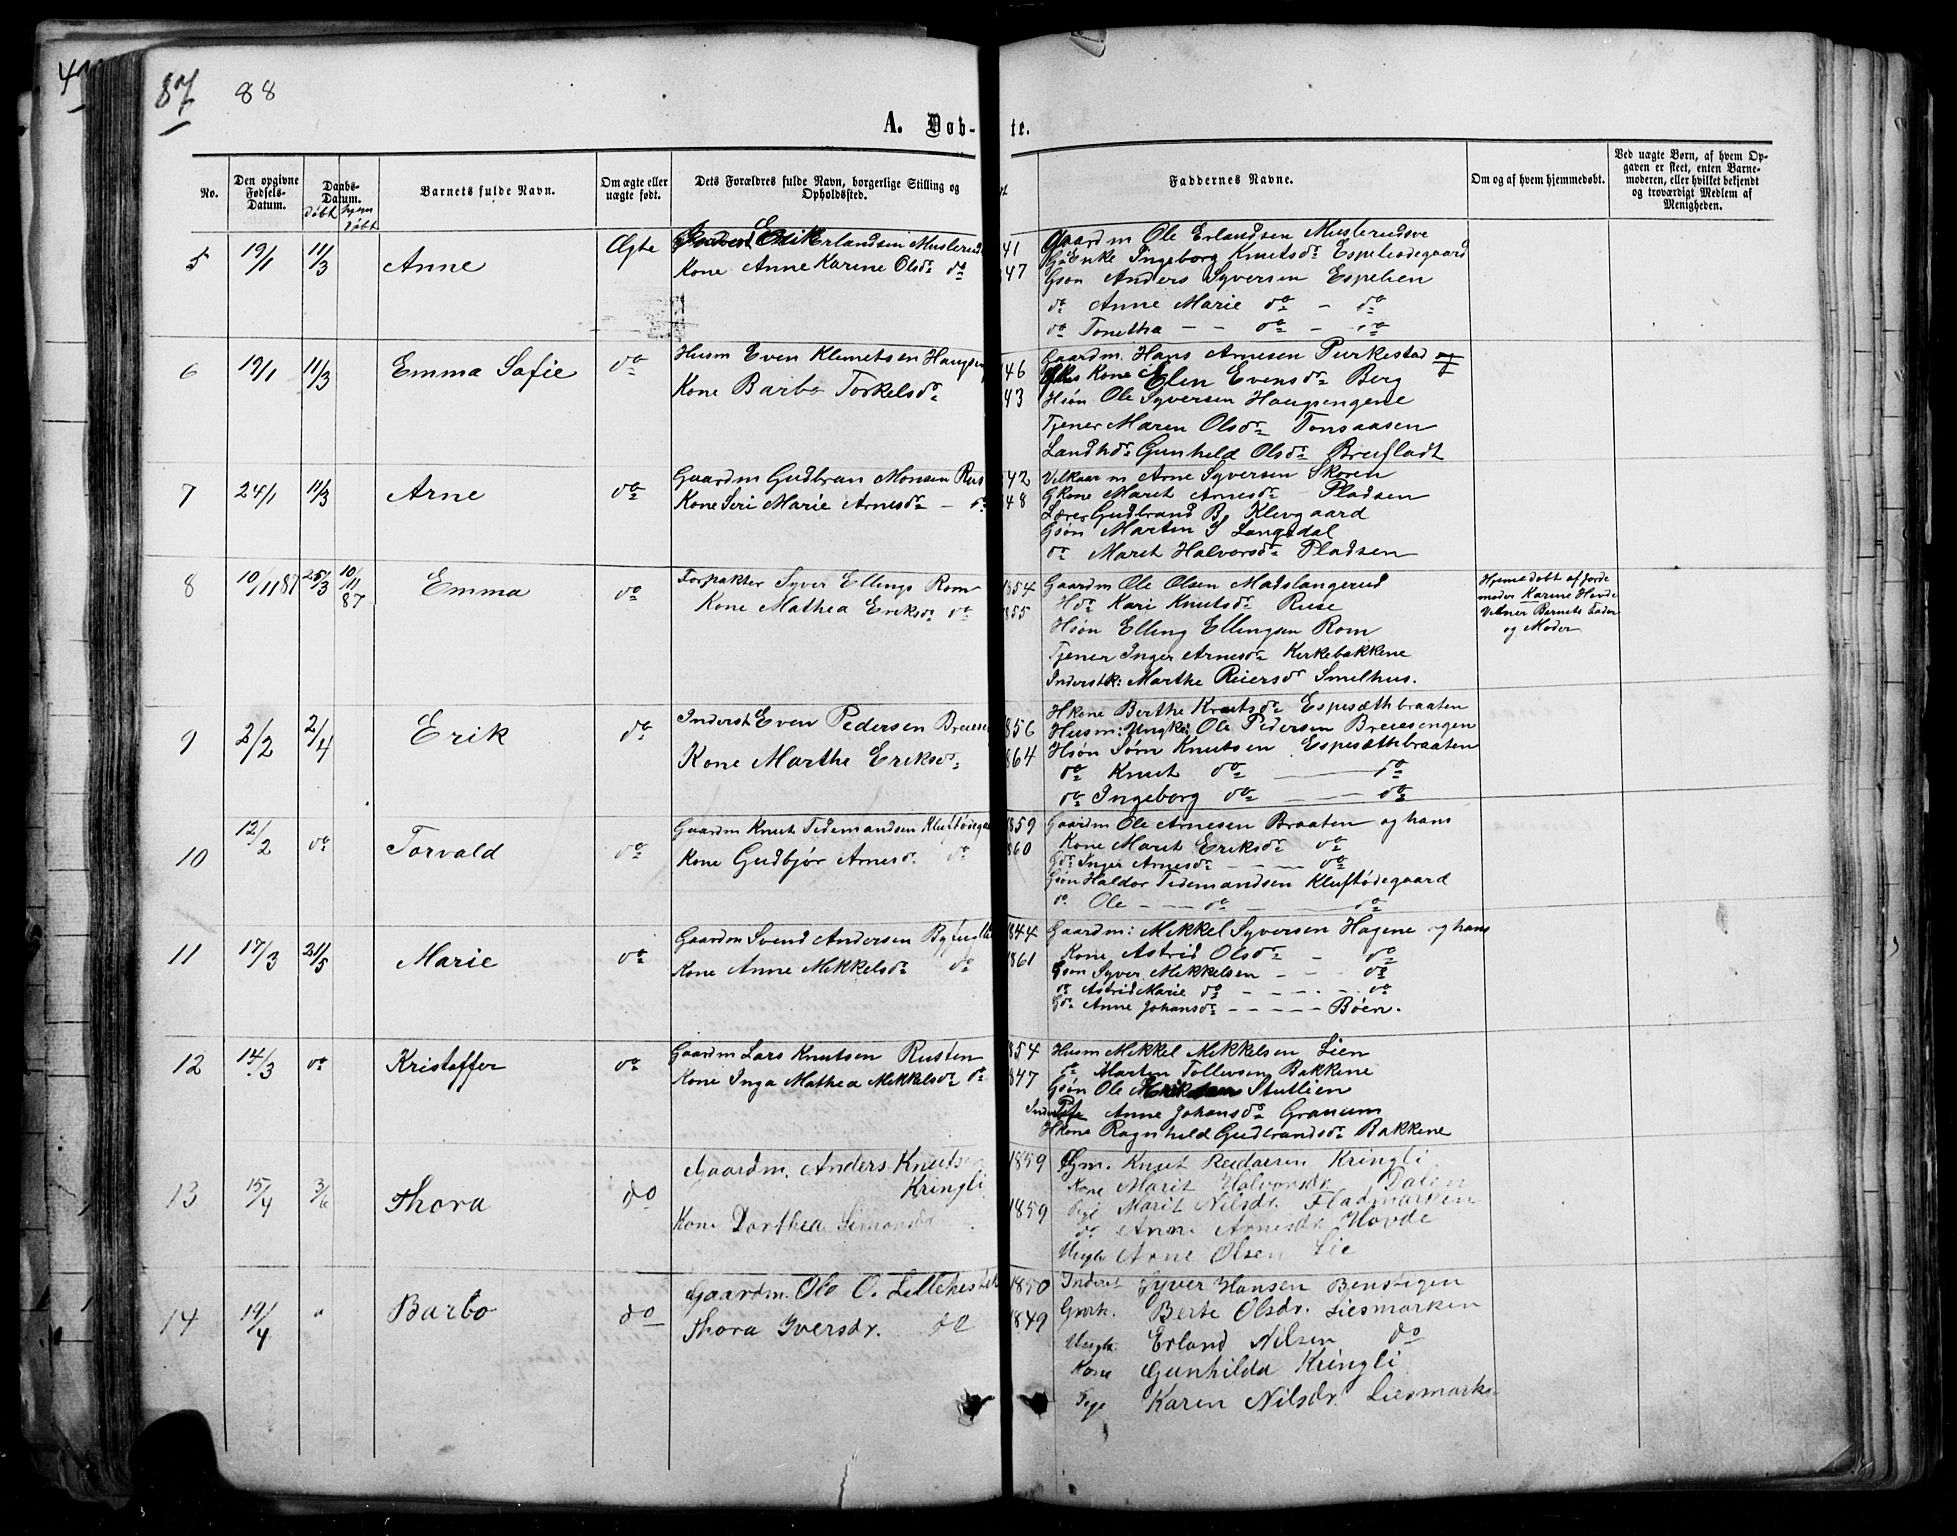 87 88
A. Døb-te.
No. Den opgivne Fødsels-Datum. Daabs-Datum. døbt hjemdøbt Barnets fulde Navn. Om ægte eller uægte født. Dets Forældres fulde Navn, borgerlige Stilling og Opholdssted. Faddernes Navne. Om og af hvem hjemmedøbt. Ved uægte Børn, af hvem Opgaven er skeet, enten Barnemoderen, eller hvilket bekjendt og troværdigt Medlem af Menigheden.
5 19/1 11/3 Anne Ægte Erik Erlandsen Muslerud
Kone Anne Karine Olsdr do
41
47
Gaardm Ole Erlandsen Muslerudsve
Enke Ingeborg Knutsdr Espeliødegaard
Gsøn Anders Syversen Espelien
do Anne Marie do - do
do Tonetha - - do - do
6 19/1 11/3 Emma Sofie do Husm Even Klemetsen Haugen
Kone Barbo Torkelsdr
46
43
Gaardm. Hans Arnesen Purkestad og
Kone Elen Evensdr Berg
Hsøn Ole Syversen Haugsengene
Tjener Maren Olsdr Tonsaasen
Landhdr Gunhild Olsdr Bruflodt
7 24/1 11/3 Arne do Gaardm Gudbran Monsen Rus
Kone Seri Marie Arnesdr - do
42
48
Velkaar m Arne Syversen Skoren
G Kone Marit Arnesdr Pladsen
Lærer Gudbrand B. Klevgaard
Gsøn Marten S Langedal
do Marit Halvorsdr Pladsen
8 10/11 87 25/3 10/11 87 Emma do Forpakter Syver Ellings Rom
Kone Mathea Eriksdr do
1854
1855
Gaardm Ole Olsen Madslangerud
Hdr Kari Knutsdr Ruse
Hsøn Elling Ellingsen Rom
Tjener Inger Arnesdr Kirkebakkene
Inderstk: Marthe Reiersdr Smelhus.
Hjemedøbt af Jorde
moder Karine Hovde
Vitner Barnets Fader
og Moder
9 2/2 2/4 Erik do Inderst Even Pedersen Breiesen
Kone Marthe Eriksdr
1856
1864
H kone Berthe Knutsdr Espesæthbraaten
Husm: Ungk: Ole Pedersen Breiesengen
Hsøn Sørn Knutsen Espesæthbraaten
do Knut do - do
do Ingeborg do - - do
10 12/2 do Torvald do Gaardm Knut Tidemandsen Kluftødegaa
Kone Gudbjør Arnesdr do
1859
1860
Gaardm Ole Arnesen Braaten og hans
Kone Marit Eriksdr do
Gdr Inger Arnesdr - - do
Gsøn Haldor Tidemandsen Kluftødegaard
do Ole - - do - do
11 17/3 21/5 Marie do Gaardm Svend Andersen Byfuglie
Kone Anne Mikkelsdr do
1844
1861
Gaardm: Mikkel Syversen Hagene og hans
Kone Astrid Olsdr - do
Gsøn Syver Mikkelsen - - do
do Astrid Marie do - - - - do
Gdr Anne Johansdr - - - - - Bøen.
12 14/3 do Kristoffer do Gaardm Lars Knutsen Rusten
Kone Inga Mathea Mikkelsdr do
1854
1847
Husm Mikkel Mikkelsen Lien
do Marten Tollevsen Bakkene
Gsøn Ole Stutlien
Anne Johansdr Granum
Hkone Ragnhild Gudbrandsdr Bakkene
13 15/4 3/6 Thora do Gaardm. Anders Knutsen
Kringli
Kone Dorthea Simonsdr
1859
1859
Gm. Knut Reidarsen Kringli
Kone Marit Halvorsdr Dalen
Pige Marit Nilsdr. Fladmarken
do Anne Arnesdr. Hovde
Ungk. Arne Olsen Lie
14 19/4 " Barbo do Gaardm. Ole O. Lillehestek
Thora Iversdr. do
1850
1849
Inderst Syver Hansen Benstigen
Gmk. Berte Olsdr. Liesmarken
Ungk. Erland Nilsen do
Kone Gunhilda Kringli
Pige Karen Nilsdr. Liesmark